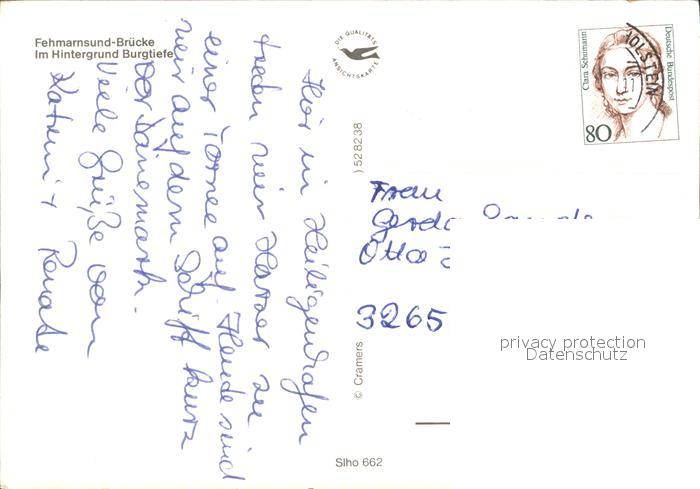 Fehmarnsund-Brücke
Im Hintergrund Burgtiefe
DIE QUALITÄTS
ANSICHTSKARTE
Clara Schumann
Deutsche Bundespost
80
HOLSTEIN
Hier in Heiligenhafen
treten wir Katzer zu
einer Tornee auf. Heute sind
wir auf dem Schiff kurz
vor Dänemark.
Viele Grüße von
Katrin + Renate
Frau
Gerda
Otto
3265
) 528238
© Cramers
Slho 662
privacy protection
Datenschutz